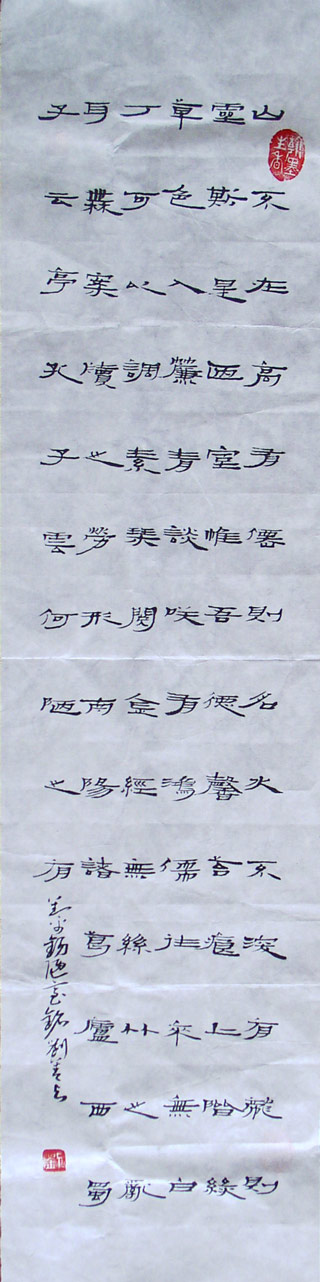 山不在高有僊則名水不深有龍則
靈斯是陋室惟吾德馨苔痕上階綠
草色入簾青談咲有鴻儒往來無白
丁可以調素琴閱金經無絲竹之亂
耳無案牘之勞形南陽諸葛廬西蜀
子云亭孔子雲何陋之有
錫陋室銘劉
翰墨生香